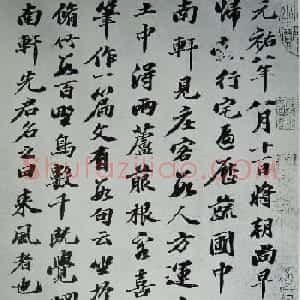 元祐八年八月十一日將朝尚早
歸
行宅
蔬圃中
南軒見庄客數人方運
土中得兩蘆菔根客喜
筆作一篇文有數句云坐於
脩竹數百野鳥數千既覺
南軒先君名之曰來風者也
shufaziliao.com